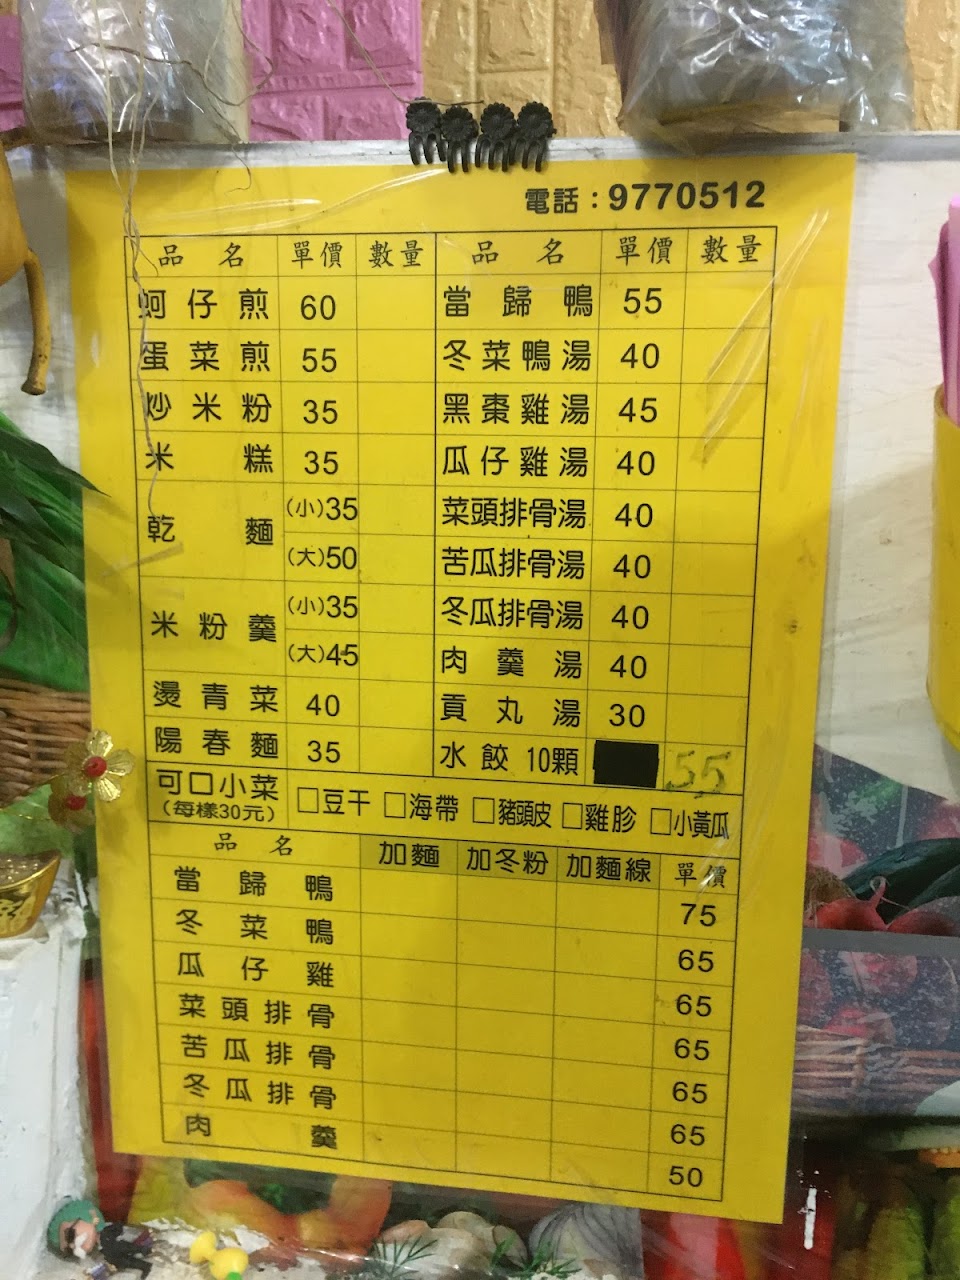 電話：9770512
品名 單價 數量 品名 單價 數量
蚵仔煎 60 當歸鴨 55
蛋菜煎 55 冬菜鴨湯 40
炒米粉 35 黑棗雞湯 45
米糕 35 瓜仔雞湯 40
乾麵 (小)35 菜頭排骨湯 40
(大)50 苦瓜排骨湯 40
米粉羹 (小)35 冬瓜排骨湯 40
(大)45 肉羹湯 40
燙青菜 40 貢丸湯 30
陽春麵 35 水餃10顆 55
可口小菜 □豆干 □海帶 □豬頭皮 □雞胗 □小黃瓜
(每樣30元)
品名 加麵 加冬粉 加麵線 單價
當歸鴨 75
冬菜鴨 65
瓜仔雞 65
菜頭排骨 65
苦瓜排骨 65
冬瓜排骨 65
肉羹 50